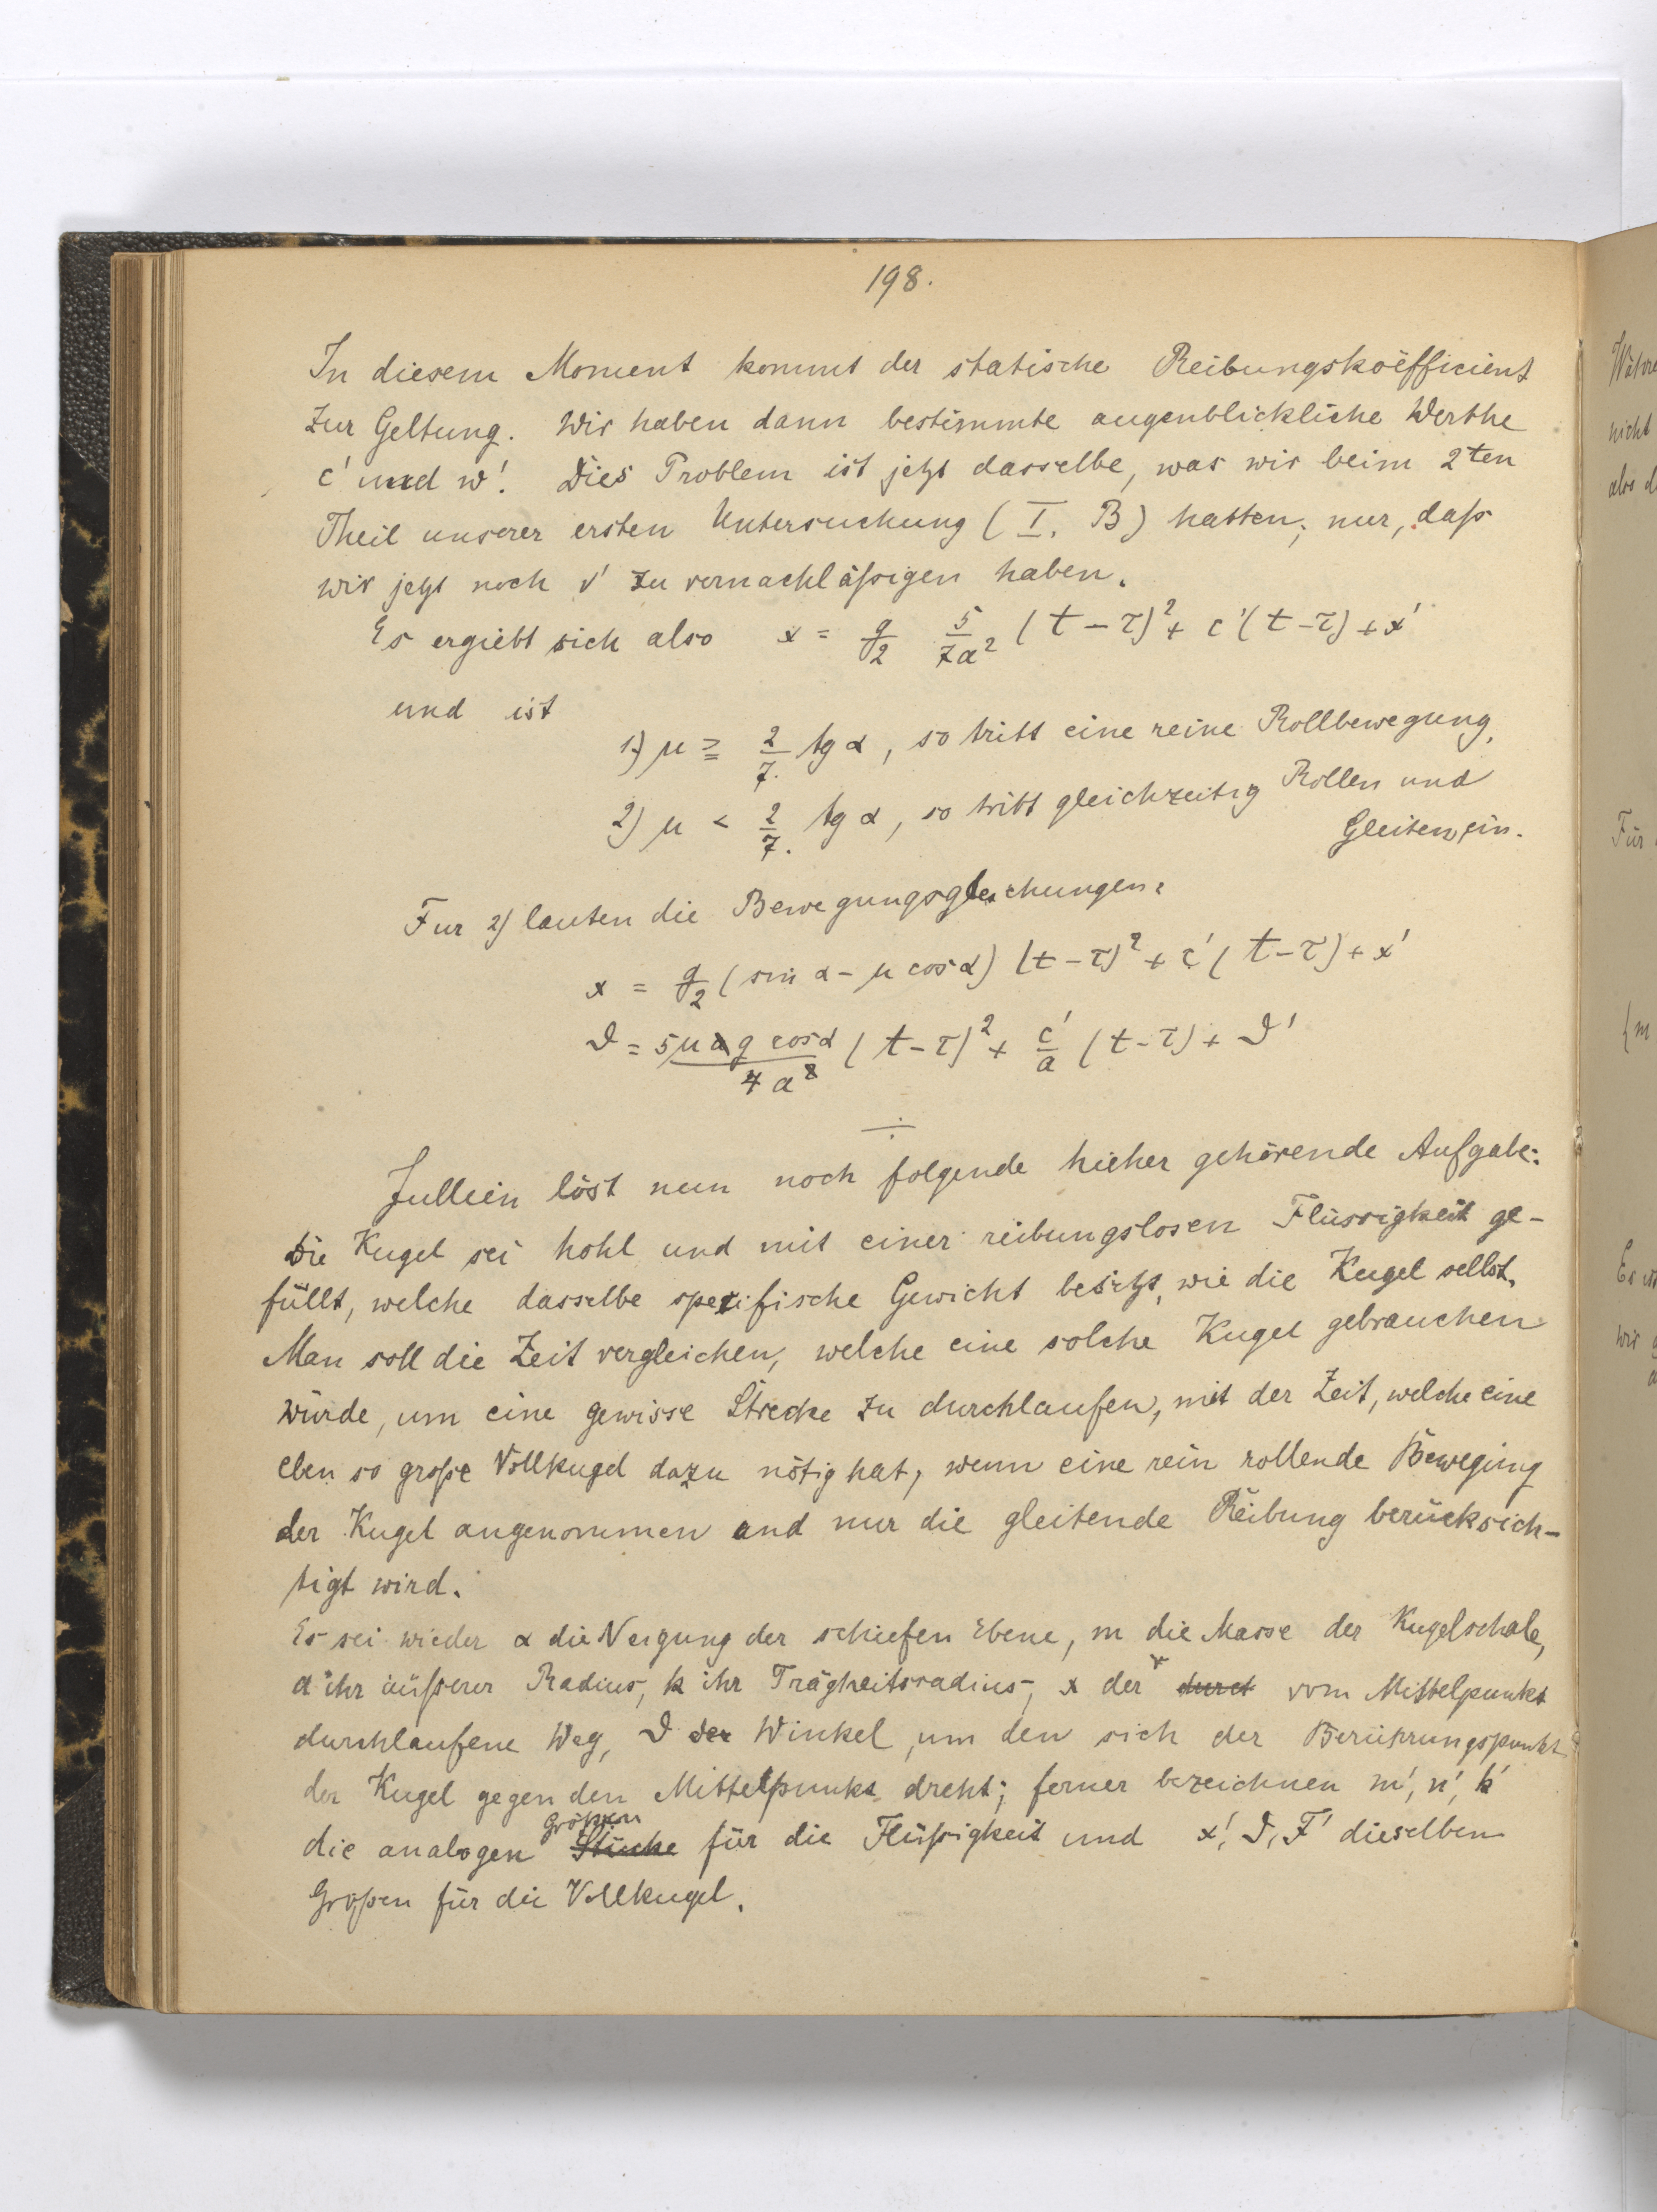 198.
In diesem Moment kommt der statische Reibungskoëfficient
zur Geltung. Wir haben dann bestimmte augenblickliche Werthe
c' und w'. Dies Problem ist jetzt dasselbe, was wir beim 2ten
Theil unserer ersten Untersuchung (I. B) hatten; nur, daß
wir jetzt noch v' zu vernachläßigen haben.
Es ergiebt sich also x = g/2 5/7a² (t-τ)² + c'(t-τ) + x'
und ist
1) μ ≧ 2/7. tg α, so tritt eine reine Rollbewegung,
2) μ < 2/7. tg α, so tritt gleichzeitig Rollen und
Gleiten ein.
Fur 2) lauten die Bewegungsgleichungen:
x = g/2 (sin α - μ cos α) (t-τ)² + c' (t-τ) + x'
ϑ = 5μag cosα/4a² (t-τ)² + c'/a (t-τ) + ϑ'
÷
Jullien löst nun noch folgende hieher gehörende Aufgabe:
Die Kugel sei hohl und mit einer reibungslosen Flüssigkeit ge-
füllt, welche dasselbe spezifische Gewicht besitzt, wie die Kugel selbst.
Man soll die Zeit vergleichen, welche eine solche Kugel gebrauchen
würde, um eine gewisse Strecke zu durchlaufen, mit der Zeit, welche eine
eben so große Vollkugel dazu nötig hat, wenn eine rein rollende Bewegung
der Kugel angenommen und nur die gleitende Reibung berücksich-
tigt wird.
Es sei wieder α die Neigung der schiefen Ebene, m die Masse der Kugelschale,
a ihr äußerer Radius, k ihr Trägheitsradius, x der durct vom Mittelpunkt
durchlaufene Weg, ϑ der Winkel, um den sich der Berührungspunkt
der Kugel gegen den Mittelpunkt dreht; ferner bezeichnen m', n', k'
die analogen Stücke Größen für die Flüßigkeit und x', ϑ, F' dieselben
Großen für die Vollkugel.
nicht
Für